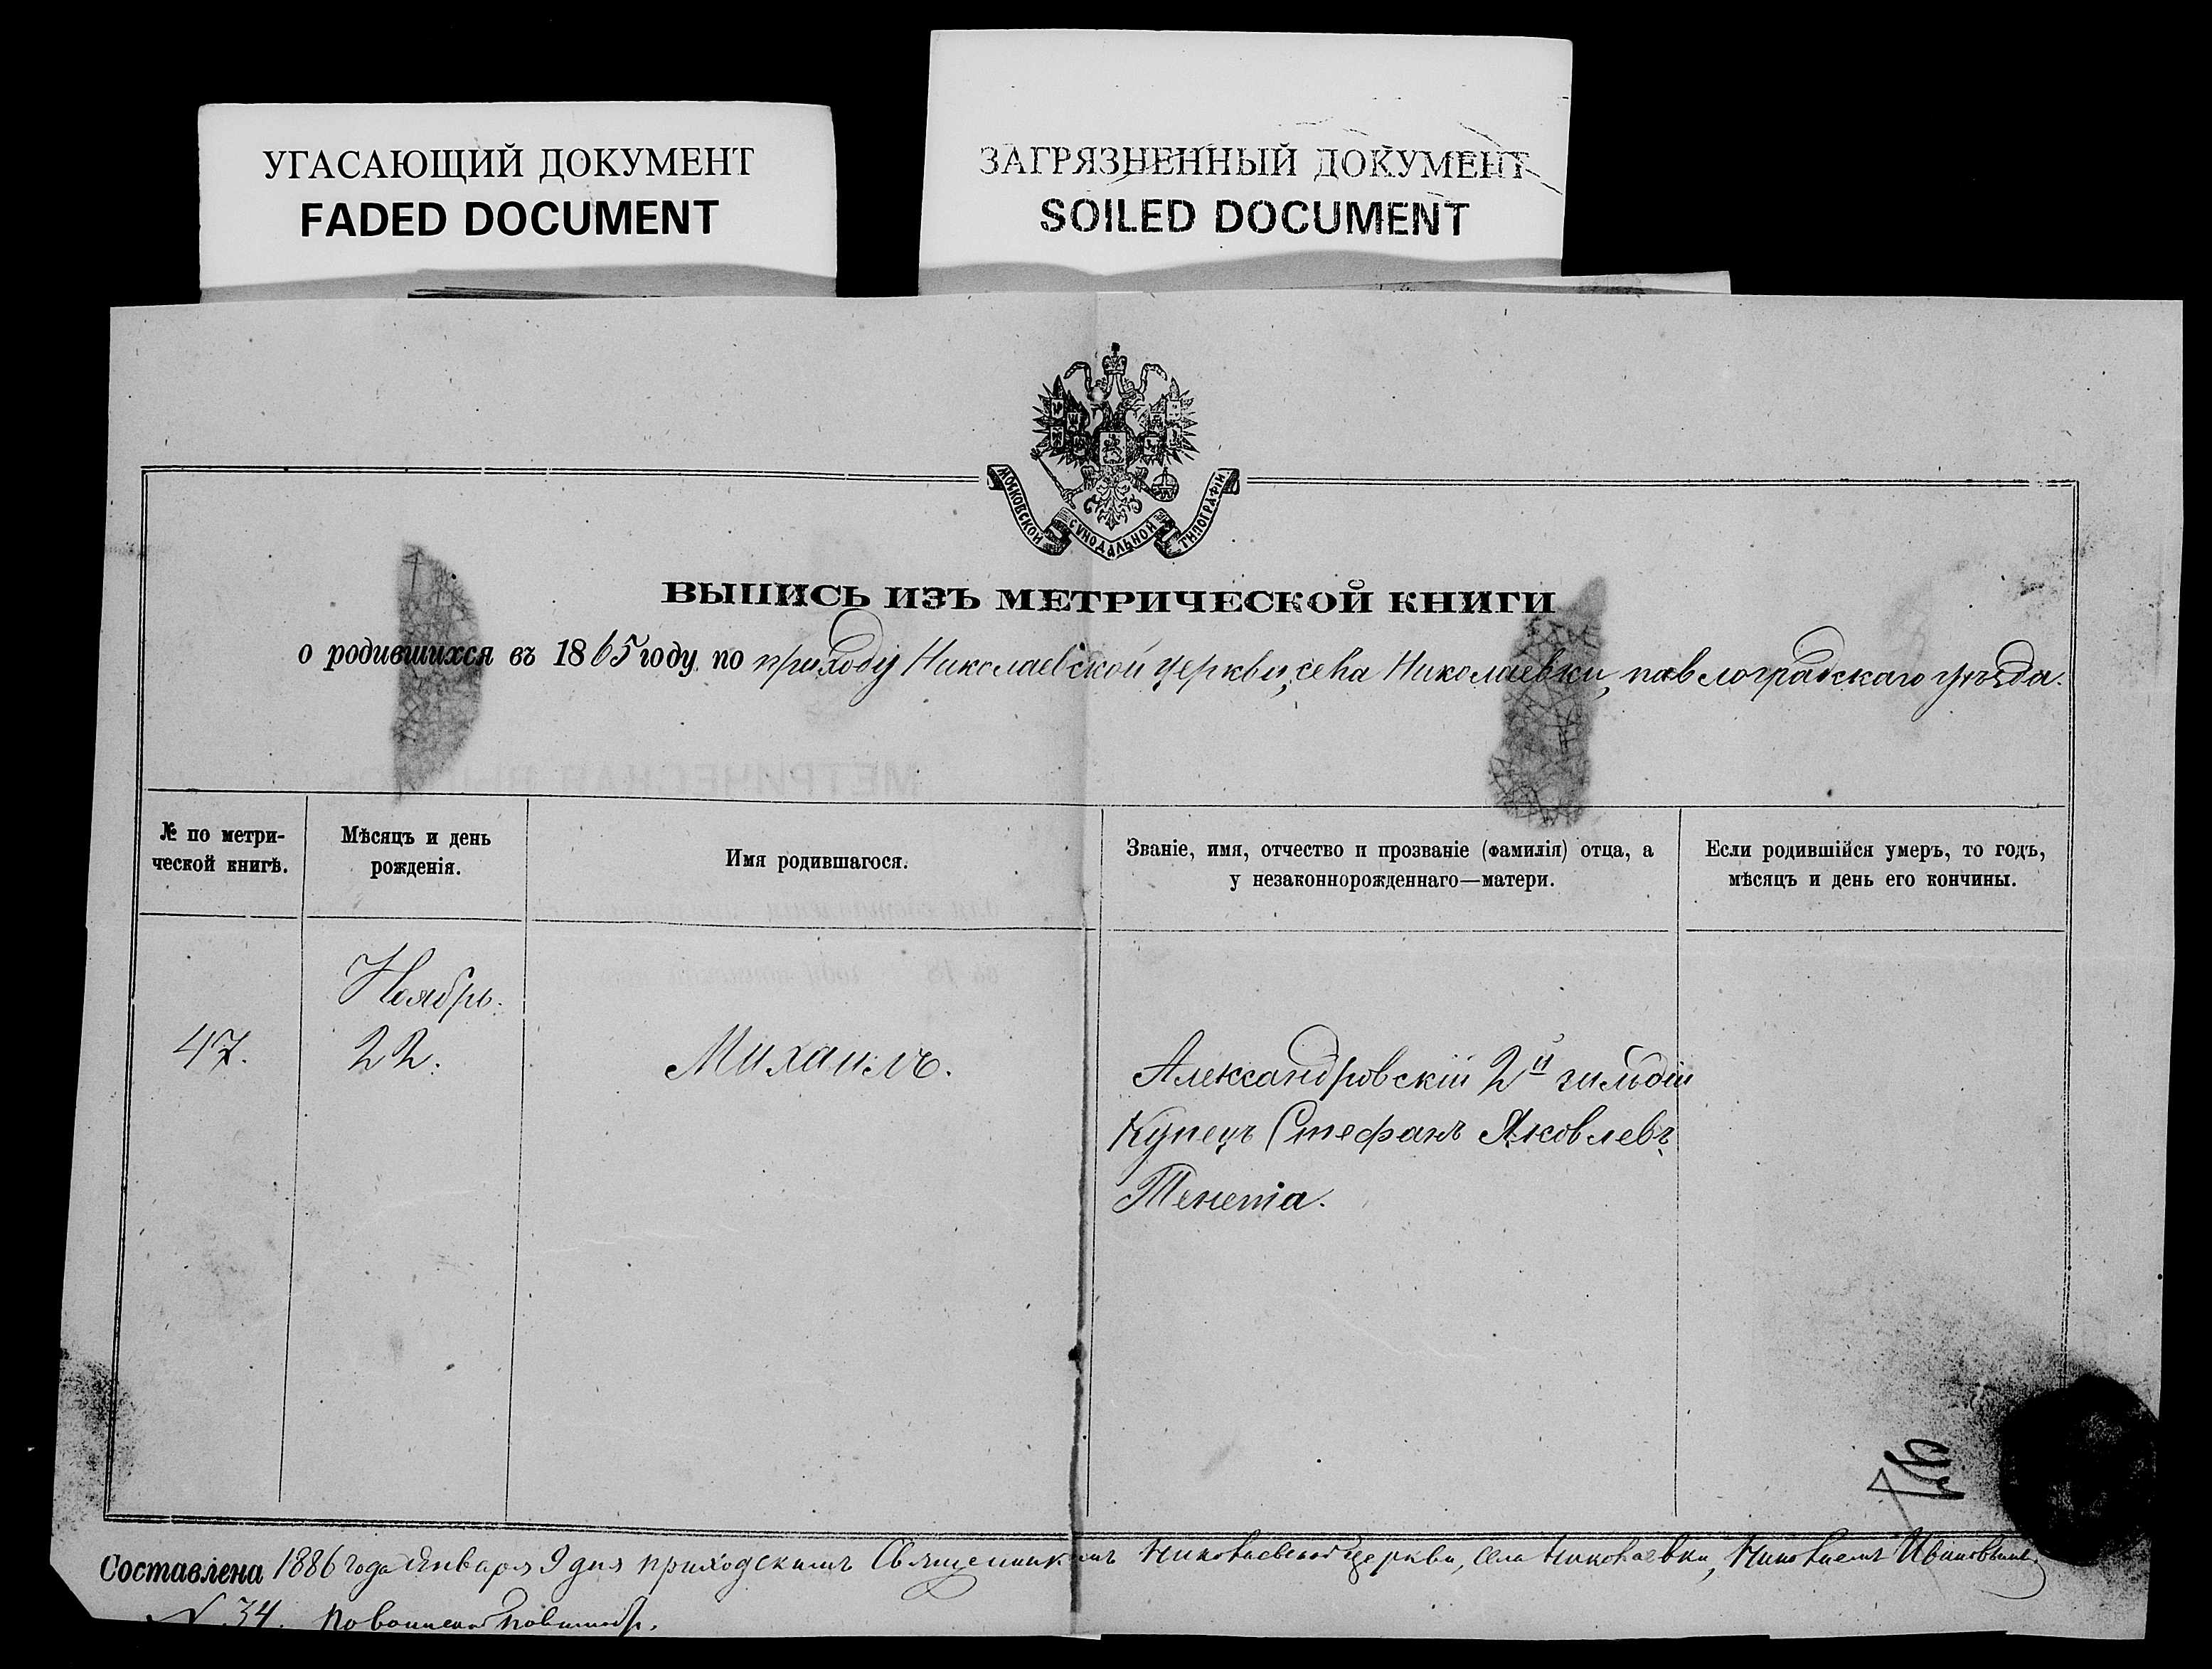 УГАСАЮЩИЙ ДОКУМЕНТ
FADED DOCUMENT
ЗАГРЯЗНЕННЫЙ ДОКУМЕНТ
SOILED DOCUMENT
МОСКОВСКОЙ СѴНОДАЛЬНОЙ ТИПОГРАФІИ
ВЫПИСЬ ИЗЪ МЕТРИЧЕСКОЙ КНИГИ
о родившихся въ 1865 году по приходу Николаевской церкви, села Николаевки, павлоградскаго уѣзда.
№ по метри-
ческой книгѣ.
Мѣсяцъ и день
рожденія.
Имя родившагося.
Званіе, имя, отчество и прозваніе (фамилія) отца, а
у незаконнорожденнаго—матери.
Если родившійся умеръ, то годъ,
мѣсяцъ и день его кончины.
Ноябрь.
47.
22.
Михаилъ.
Александровскій 2й гильдіи
Купецъ Стефанъ Яковлевъ
Тенета.
76
Составлена 1886 года Января 9 дня приходскимъ Священникомъ Николаевской церкви, села Николаевки, Николаемъ Ивановымъ.
N. 34. По воинской повинности.